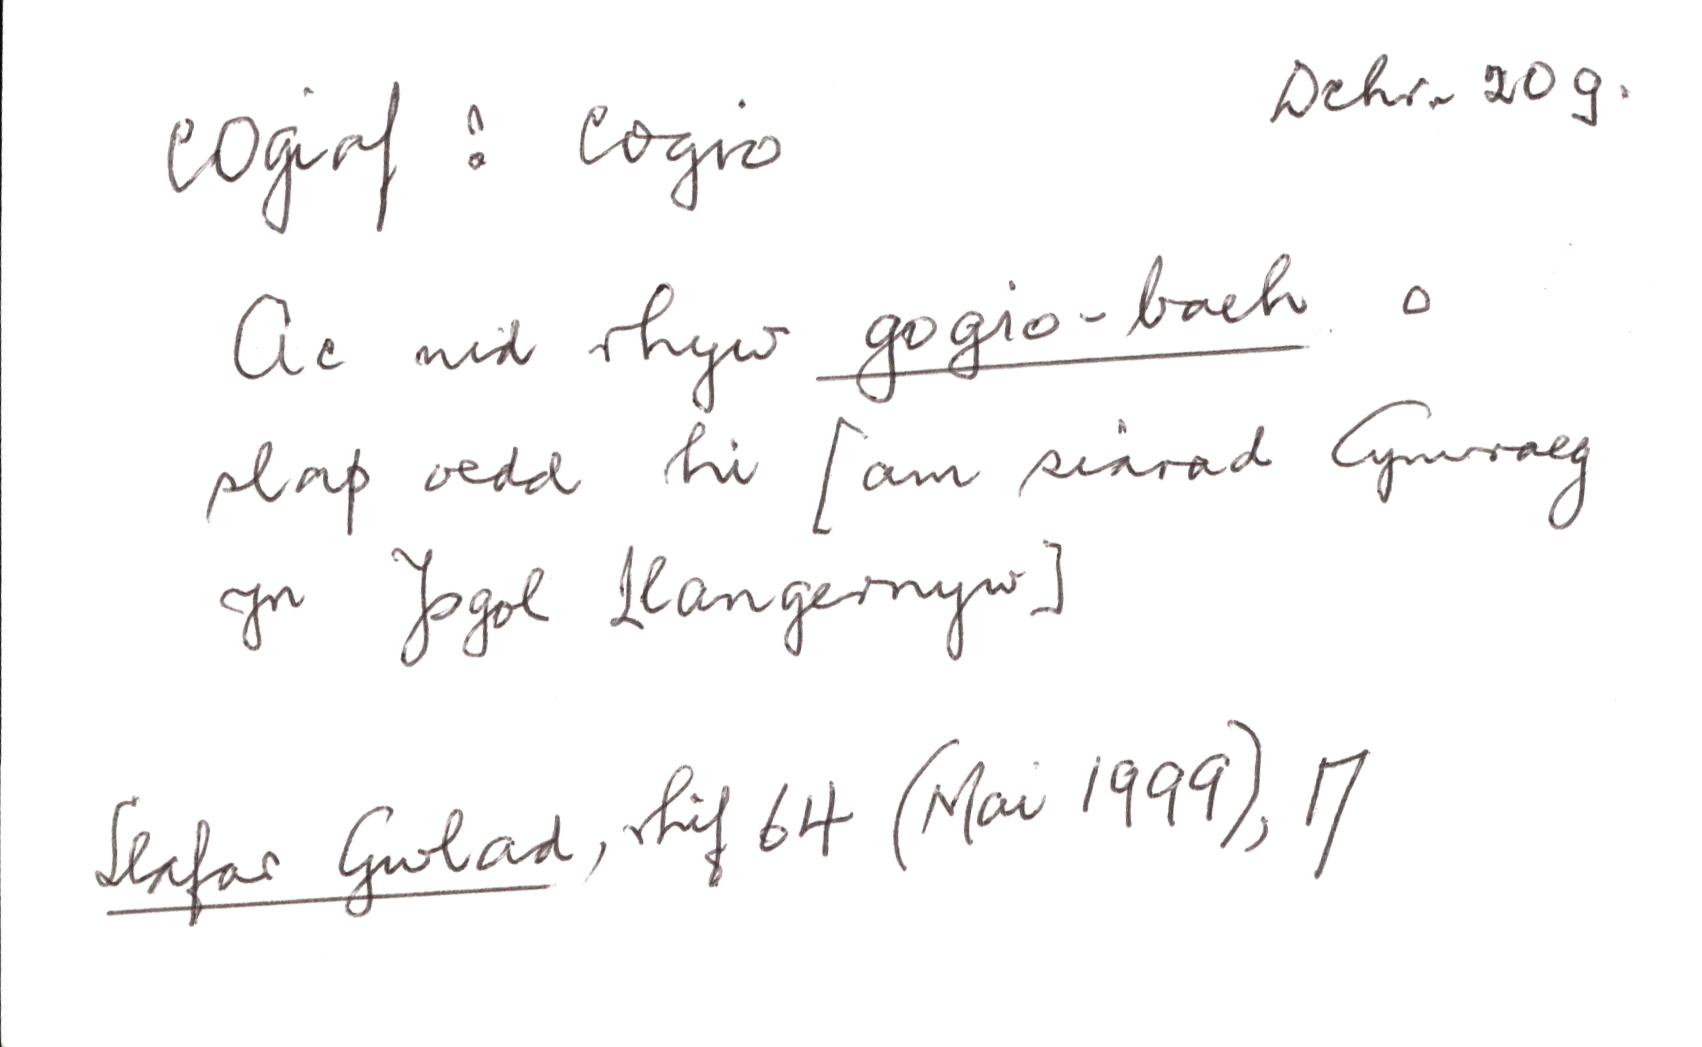 cogiaf : cogio
Dchr. 20g.
Ac nid rhyw gogio-bach o
slap oedd hi [am siarad Cymraeg
yn Ysgol Llangernyw]
Llafar Gwlad, rhif 64 (Mai 1999), 17